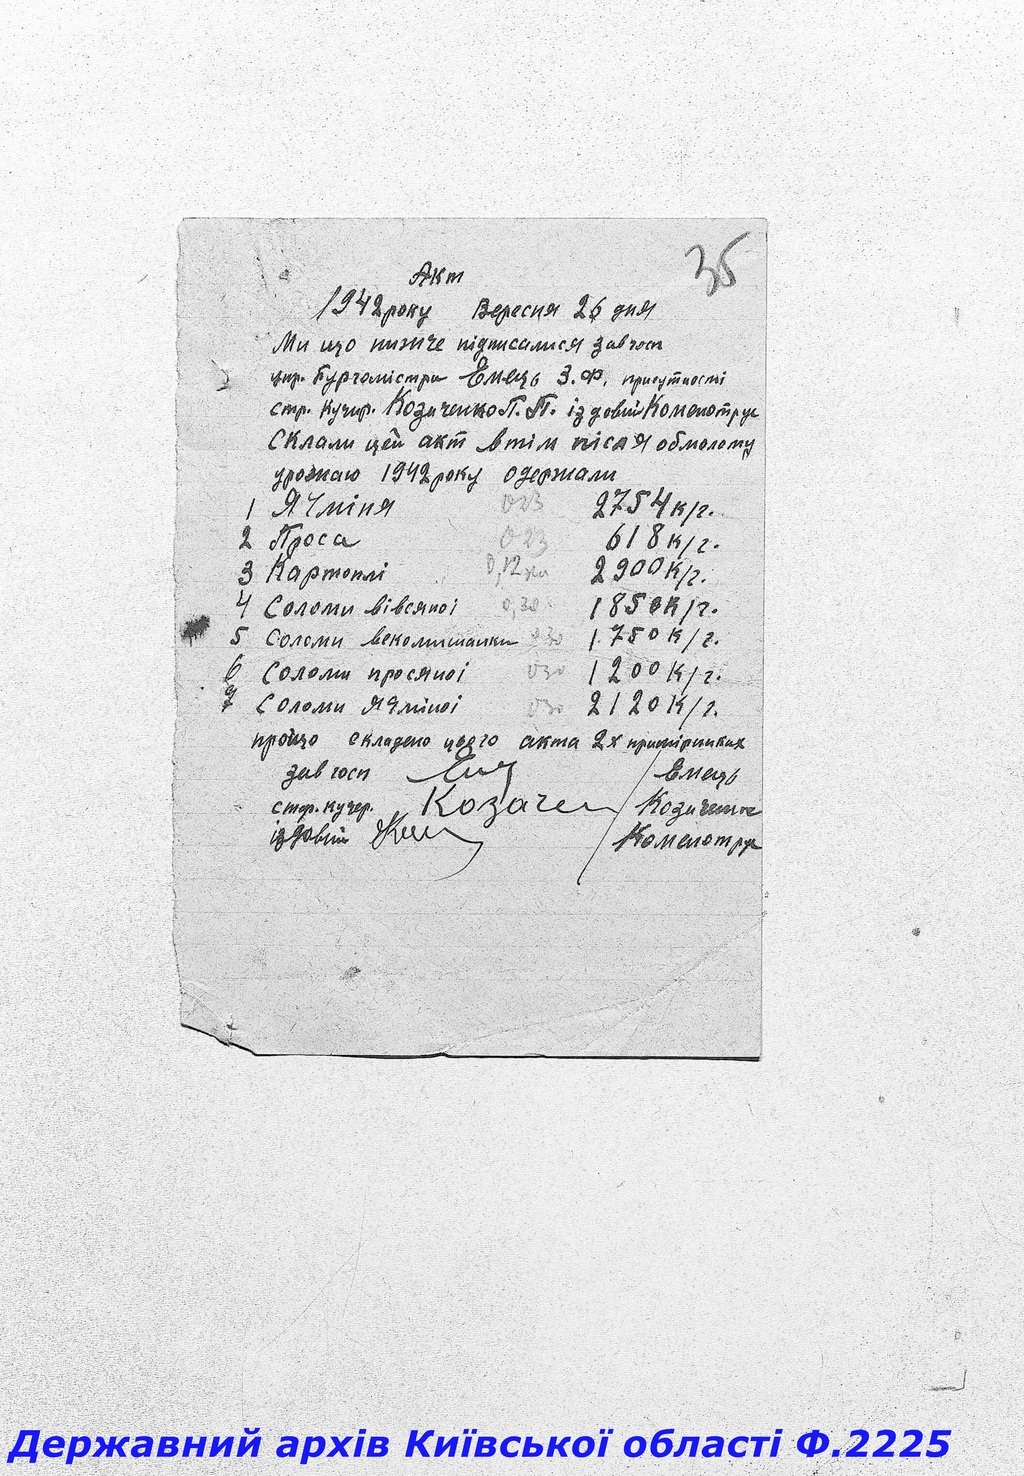 35
Акт
1942 року Вересня 26 дня
Ми що нижче підписалися завгосп
упр. Бургомістра Ємець З.Ф. присутності
стр. кучир. Козаченко П.П. іздовий
Склали цей акт втім після обмолоту
урожаю 1942 року одержали
1 Ячміня 023 2754 к/г.
2 Проса 023 618 к/г.
3 Картоплі 0,12 2900 к/г.
4 Соломи вівсяної 0,30 1850 к/г.
5 Соломи векомишанки 030 1750 к/г.
6 Соломи просяної 030 1200 к/г.
7 Соломи ячміної 030 2120 к/г.
прощо складено цього акта 2х примірниках
завгосп Ємець
стар. кучер. Козаченко
іздовий
Державний архів Київської області Ф.2225